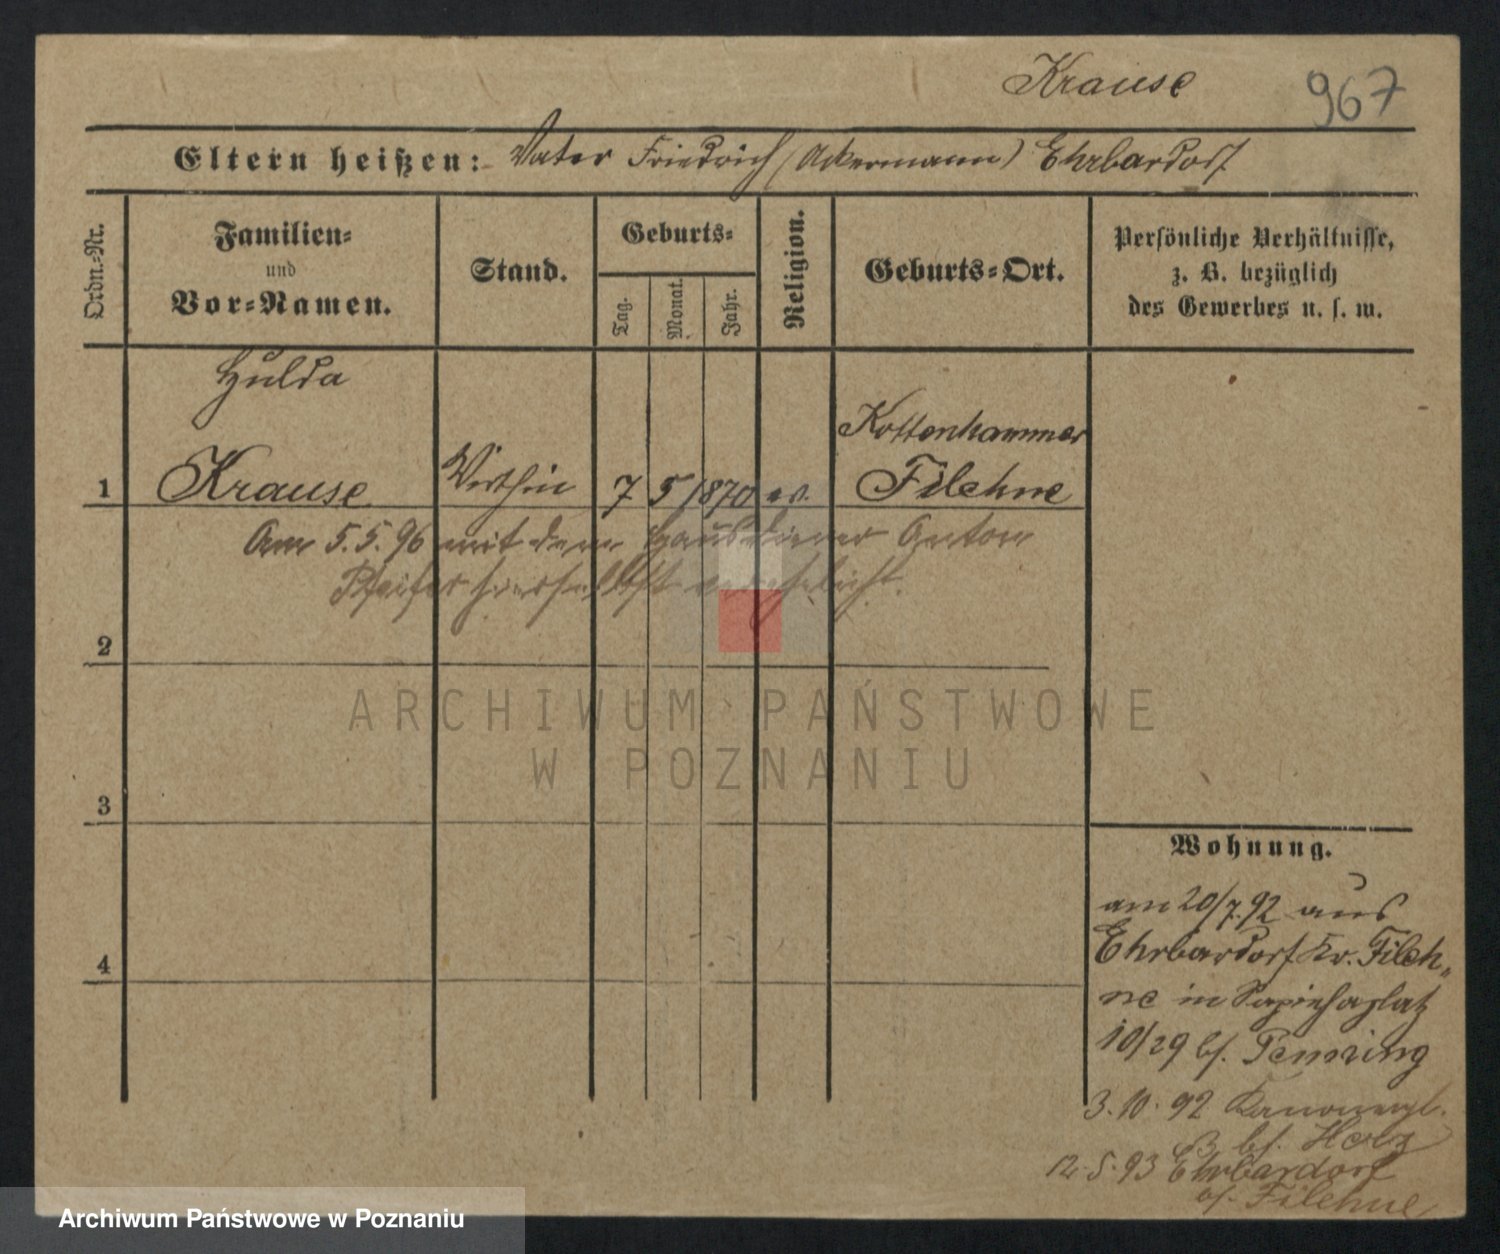 Krause 967
Eltern heißen: Vater Friedrich (Ackermann) Ehrbardorf
Ordn.-Nr.
Familien-
und
Vor-Namen.
Stand.
Geburts-
Tag.
Monat.
Jahr.
Religion.
Geburts-Ort.
Persönliche Verhältnisse,
z. B. bezüglich
des Gewerbes u. s. w.
Hulda
Kottenhammer
1 Krause Wirthin 7 5 1870 ev. Filehne
Am 5.5.96 mit dem Hausdiener Anton
Pfeifer hierselbst verehelicht.
2
3
4
ARCHIWUM PAŃSTWOWE
W POZNANIU
Wohnung.
am 20/7.92 aus
Ehrbardorf Kr. Fileh-
ne in Sapiehaplatz
10/29 bs. Penning
3.10.92 Kanonenpl.
bs. Herz
12.5.93 Ehrbardorf
Filehne
Archiwum Państwowe w Poznaniu